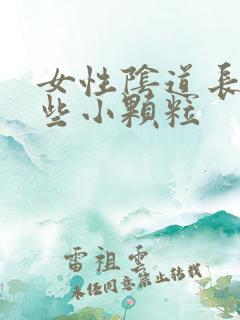 女性陰道長
些小顆粒
雷祖雲
未經同意禁止轉載